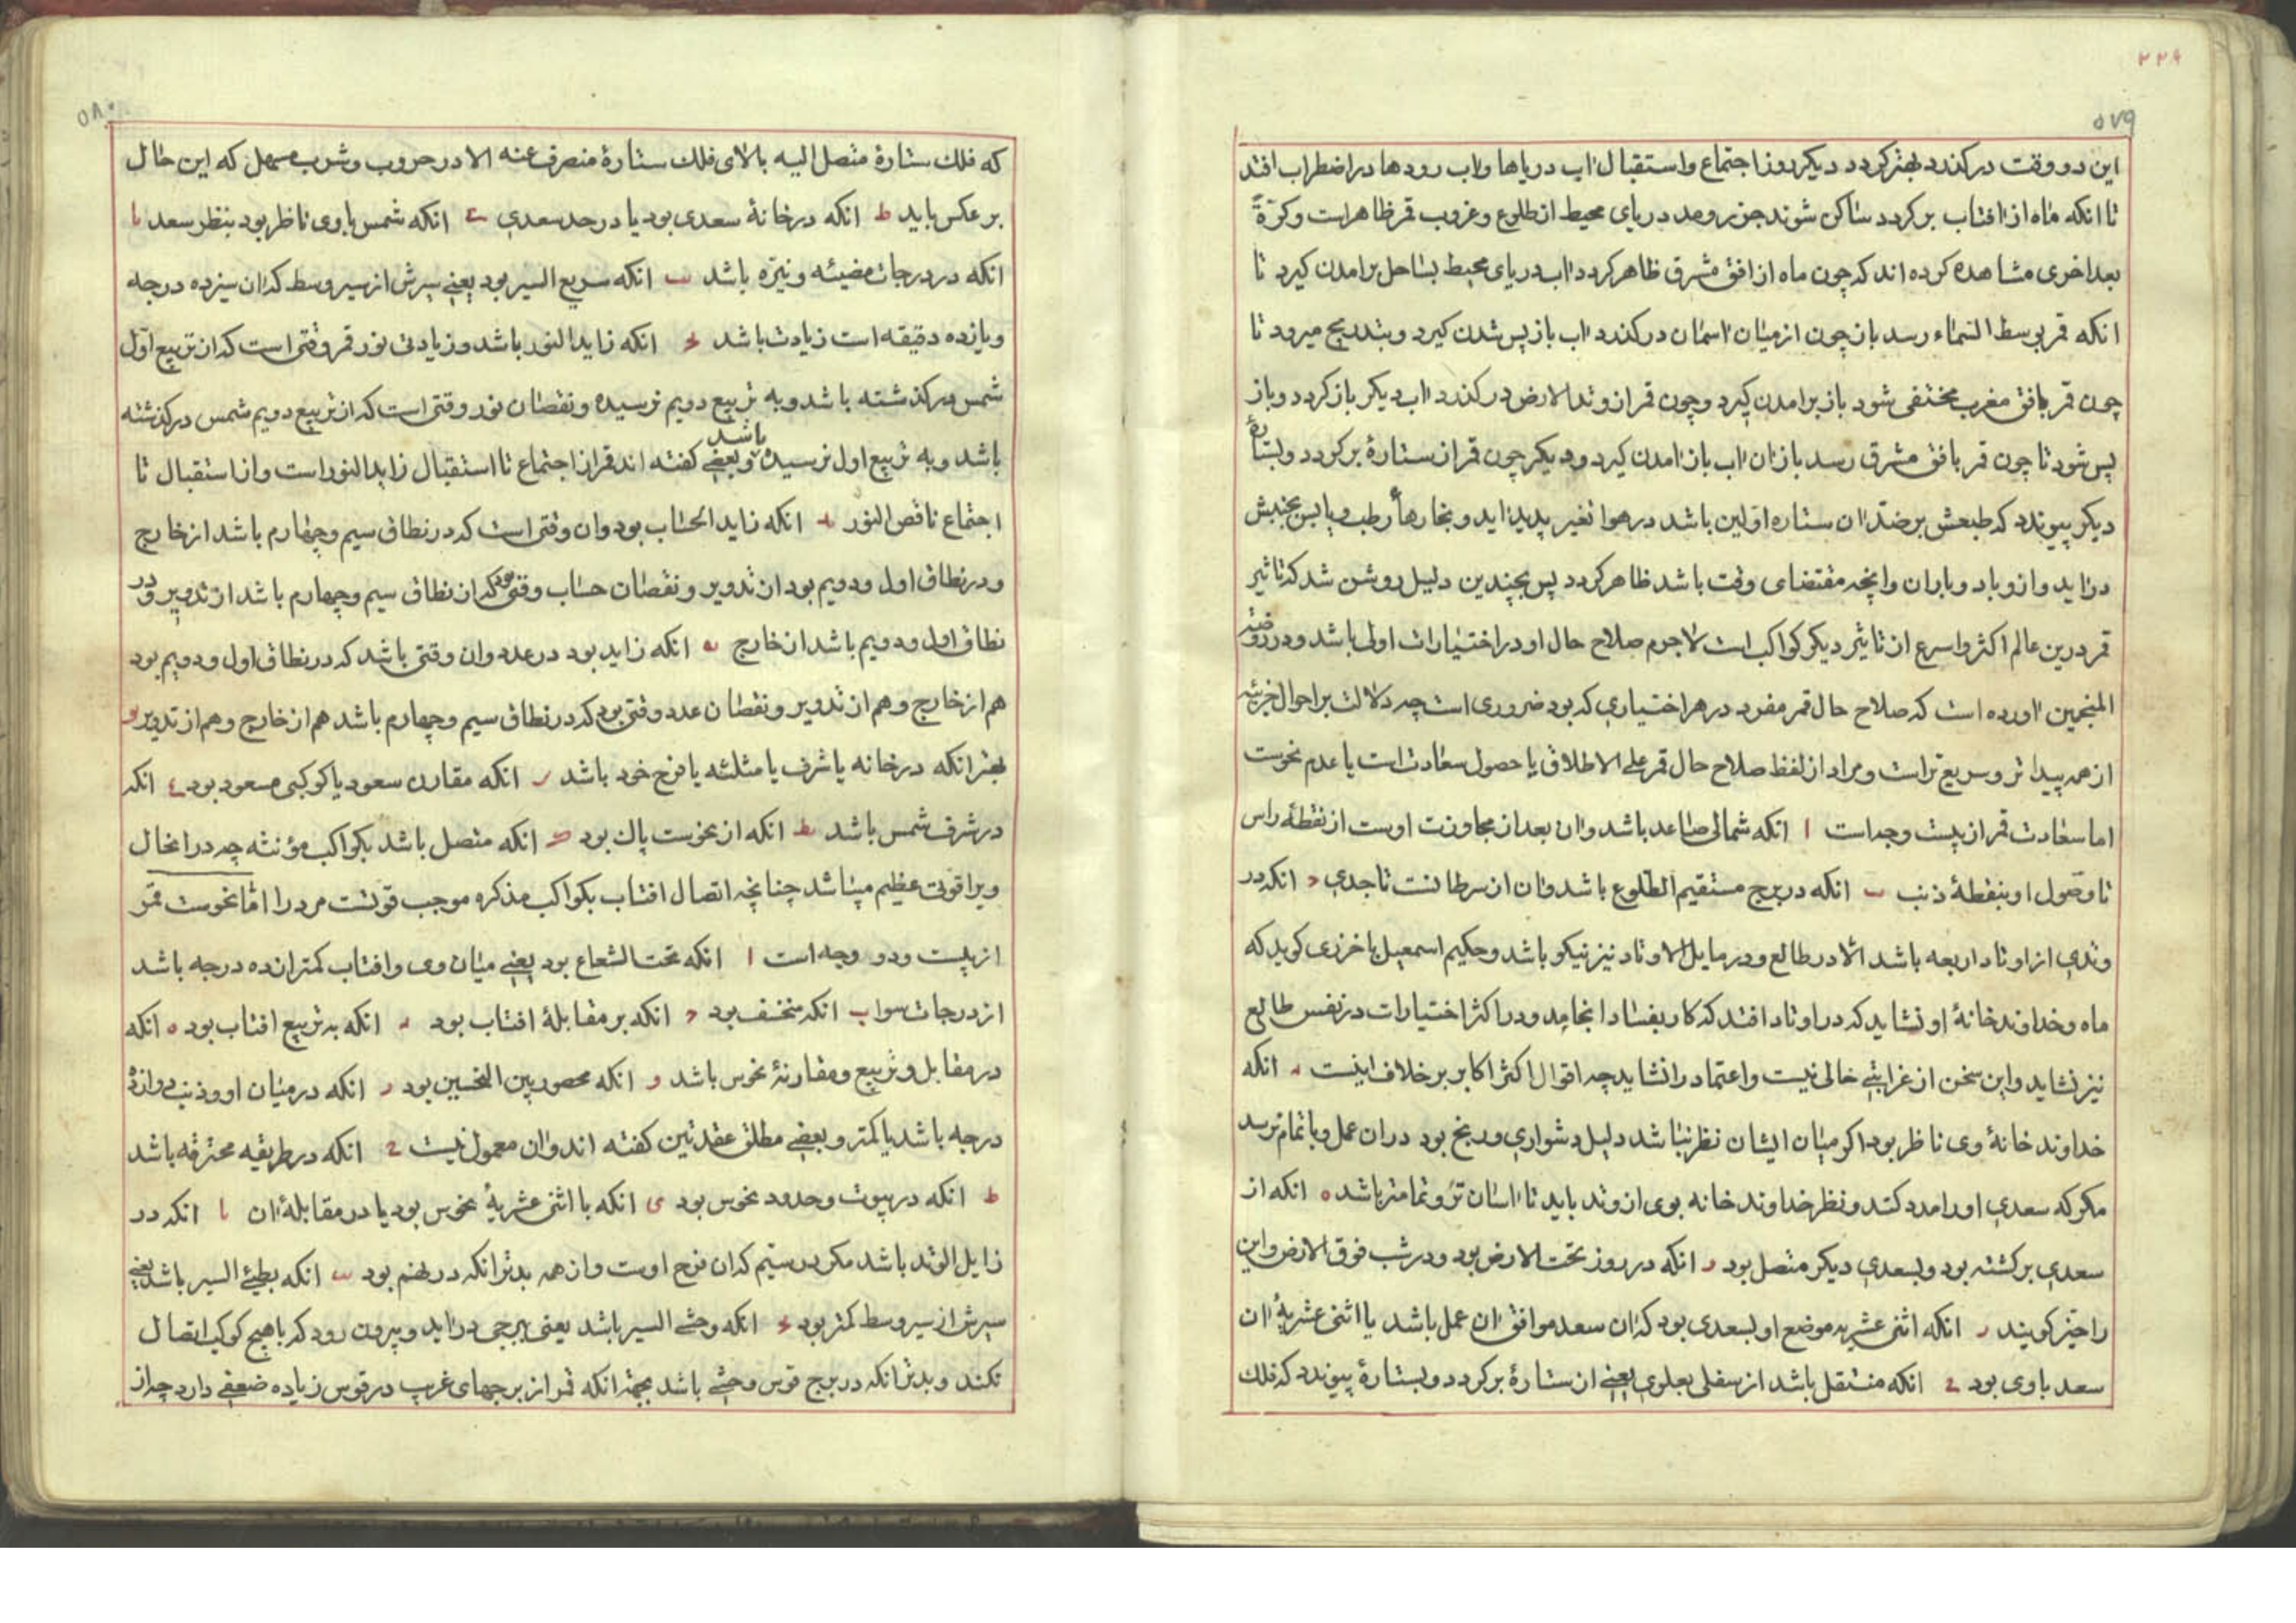 ۲۲۶
۵۷۹
این دو وقت درکذرد بهتر کردد دیکر روز اجتماع واستقبال اب دریاها واب رودها در اضطراب افتد
تا انکه ماه از افتاب برکردد ساکن شوند جزر ومد دریای محیط از طلوع وغروب قمر ظاهرات وکرّة
بعد اخری مشاهده کرده اند که چون ماه از افق مشرق ظاهر کردد اب دریای محیط بساحل برامدن کیرد تا
انکه قمر بوسط السماء رسد باز چون از میان اسمان درکذرد اب باز پس شدن کیرد وبتدریج میرود تا
چون قمر بافق مغرب مختفی شود باز برامدن کیرد وچون قمر از وتد الارض درکذرد اب دیکر باز کردد وباز
پس شود تا چون قمر بافق مشرق رسد باز ان اب باز امدن کیرد ودیکر چون قمر از ستارۀ برکردد وبستارۀ
دیکر پیوندد که طبعش بر ضدّ ان ستاره اولین باشد در هوا تغیر پدید اید وبخارهاء رطب ویابس بجنبش
دراید وازو باد وباران وانچه مقتضای وقت باشد ظاهر کردد پس بچندین دلیل روشن شد که تاثیر
قمر درین عالم اکثر واسرع از تاثیر دیکر کواکب است لاجرم صلاح حال او در اختیارات اولی باشد ودر روضة
المنجمین اورده است که صلاح حال قمر مفرد در هر اختیاری که بود ضروری است چه دلالت بر احوال جزئیه
از همه پیداتر وسریع تر است ومراد از لفظ صلاح حال قمر علی الاطلاق یا حصول سعادتست یا عدم نحوست
اما سعادت قمر از بیست وجه است ا انکه شمالی صاعد باشد وان بعد از مجاوزت اوست از نقطۀ راس
تا وصول او بنقطۀ ذنب ب انکه در برج مستقیم الطلوع باشد وان از سرطانست تا جدی ج انکه در
وتدی از اوتاد اربعه باشد الّا در طالع ودر مایل الاوتاد نیز نیکو باشد وحکیم اسمعیل باخرزی کوید که
ماه وخداوند خانۀ او نشاید که در اوتاد افتد که کار بفساد انجامد ودر اکثر اختیارات در نفس طالع
نیز نشاید واین سخن از غرابتی خالی نیست واعتماد را نشاید چه اقوال اکثر اکابر بر خلاف اینست د انکه
خداوند خانۀ وی ناظر بود اکر میان ایشان نظر نباشد دلیل دشواری ورنج بود در ان عمل وباتمام نرسد
مکر که سعدی او را مدد کند ونظر خداوند خانه بوی از وتد باید تا اسان تر وتمامتر باشد ه انکه از
سعدی برکشته بود وبسعدی دیکر متصل بود و انکه در روز تحت الارض بود ودر شب فوق الارض واین
را حیّز کویند ز انکه اثنی عشریه موضع او بسعدی بود که ان سعد موافق ان عمل باشد یا اثنی عشریۀ ان
سعد باوی بود ح انکه منتقل باشد از سفلی بعلوی یعنی از ستارۀ برکردد وبستارۀ پیوندد که فلک
۵۸۰
که فلک ستارۀ متصل الیه بالای فلک ستارۀ منصرف عنه الا در حروب وشرب مسهل که این حال
بر عکس باید ط انکه در خانۀ سعدی بود یا در حد سعدی ی انکه شمس باوی ناظر بود بنظر سعد یا
انکه در درجات مضیئه ونیّره باشد یب انکه سریع السیر بود یعنی سیرش از سیر وسط که ان سیزده درجه
ویازده دقیقه است زیادت باشد یج انکه زاید النور باشد وزیادتی نور قمر وقتی است که از تربیع اوّل
شمس درکذشته باشد وبه تربیع دویم نرسیده ونقصان نور وقتی است که از تربیع دویم شمس درکذشته
باشد وبه تربیع اول نرسیده باشد وبعضی کفته اند قمر از اجتماع تا استقبال زاید النور است واز استقبال تا
اجتماع ناقص النور ید انکه زاید الحساب بود وان وقتی است که در نطاق سیم وچهارم باشد از خارج
ودر نطاق اول ودویم بود از تدویر ونقصان حساب وقتی بود که از نطاق سیم وچهارم باشد از تدویر ودر
نطاق اول ودویم باشد از خارج یه انکه زاید بود در عدد وان وقتی باشد که در نطاق اول ودویم بود
هم از خارج وهم از تدویر ونقصان عدد وقتی بود که در نطاق سیم وچهارم باشد هم از خارج وهم از تدویر یو
بهتر انکه در خانه یا شرف یا مثلثه یا فرح خود باشد یز انکه مقارن سعود یا کوکبی مسعود بود یح انکه
در شرف شمس باشد یط انکه از نحوست پاک بود ک انکه متصل باشد بکواکب مؤنثه چه در انحال
ویرا قوتی عظیم میباشد چنانچه اتصال افتاب بکواکب مذکره موجب قوتست مر درا امّا نحوست قمر
از بیست ودو وجه است ا انکه تحت الشعاع بود یعنی میان وی وافتاب کمتر از ده درجه باشد
از درجات سوا ب انکه منخسف بود ج انکه بر مقابلۀ افتاب بود د انکه به تربیع افتاب بود ه انکه
در مقابل وتربیع ومقارنۀ نحوس باشد و انکه محصور بین النحسین بود ز انکه در میان او وذنب دوازدۀ
درجه باشد یا کمتر وبعضی مطلق عقدتین کفته اند وان معمول نیست ح انکه در طریقه محترقه باشد
ط انکه در بیوت وحدود نحوس بود ی انکه با اثنی عشریۀ نحوس بود یا در مقابلۀ ان یا انکه در
زایل الوتد باشد مکر در سیّم که ان فرح اوست واز همه بدتر انکه در نهم بود یب انکه بطیئ السیر باشد یعنی
سیرش از سیر وسط کمتر بود یج انکه وحشی السیر باشد یعنی ببرجی دراید وبیرون رود که باهیچ کوکب اتصال
نکند وبدتر انکه در برج قوس وحشی باشد بجهة انکه قمر از برجهای غریب در قوس زیاده ضعفی دارد چه از